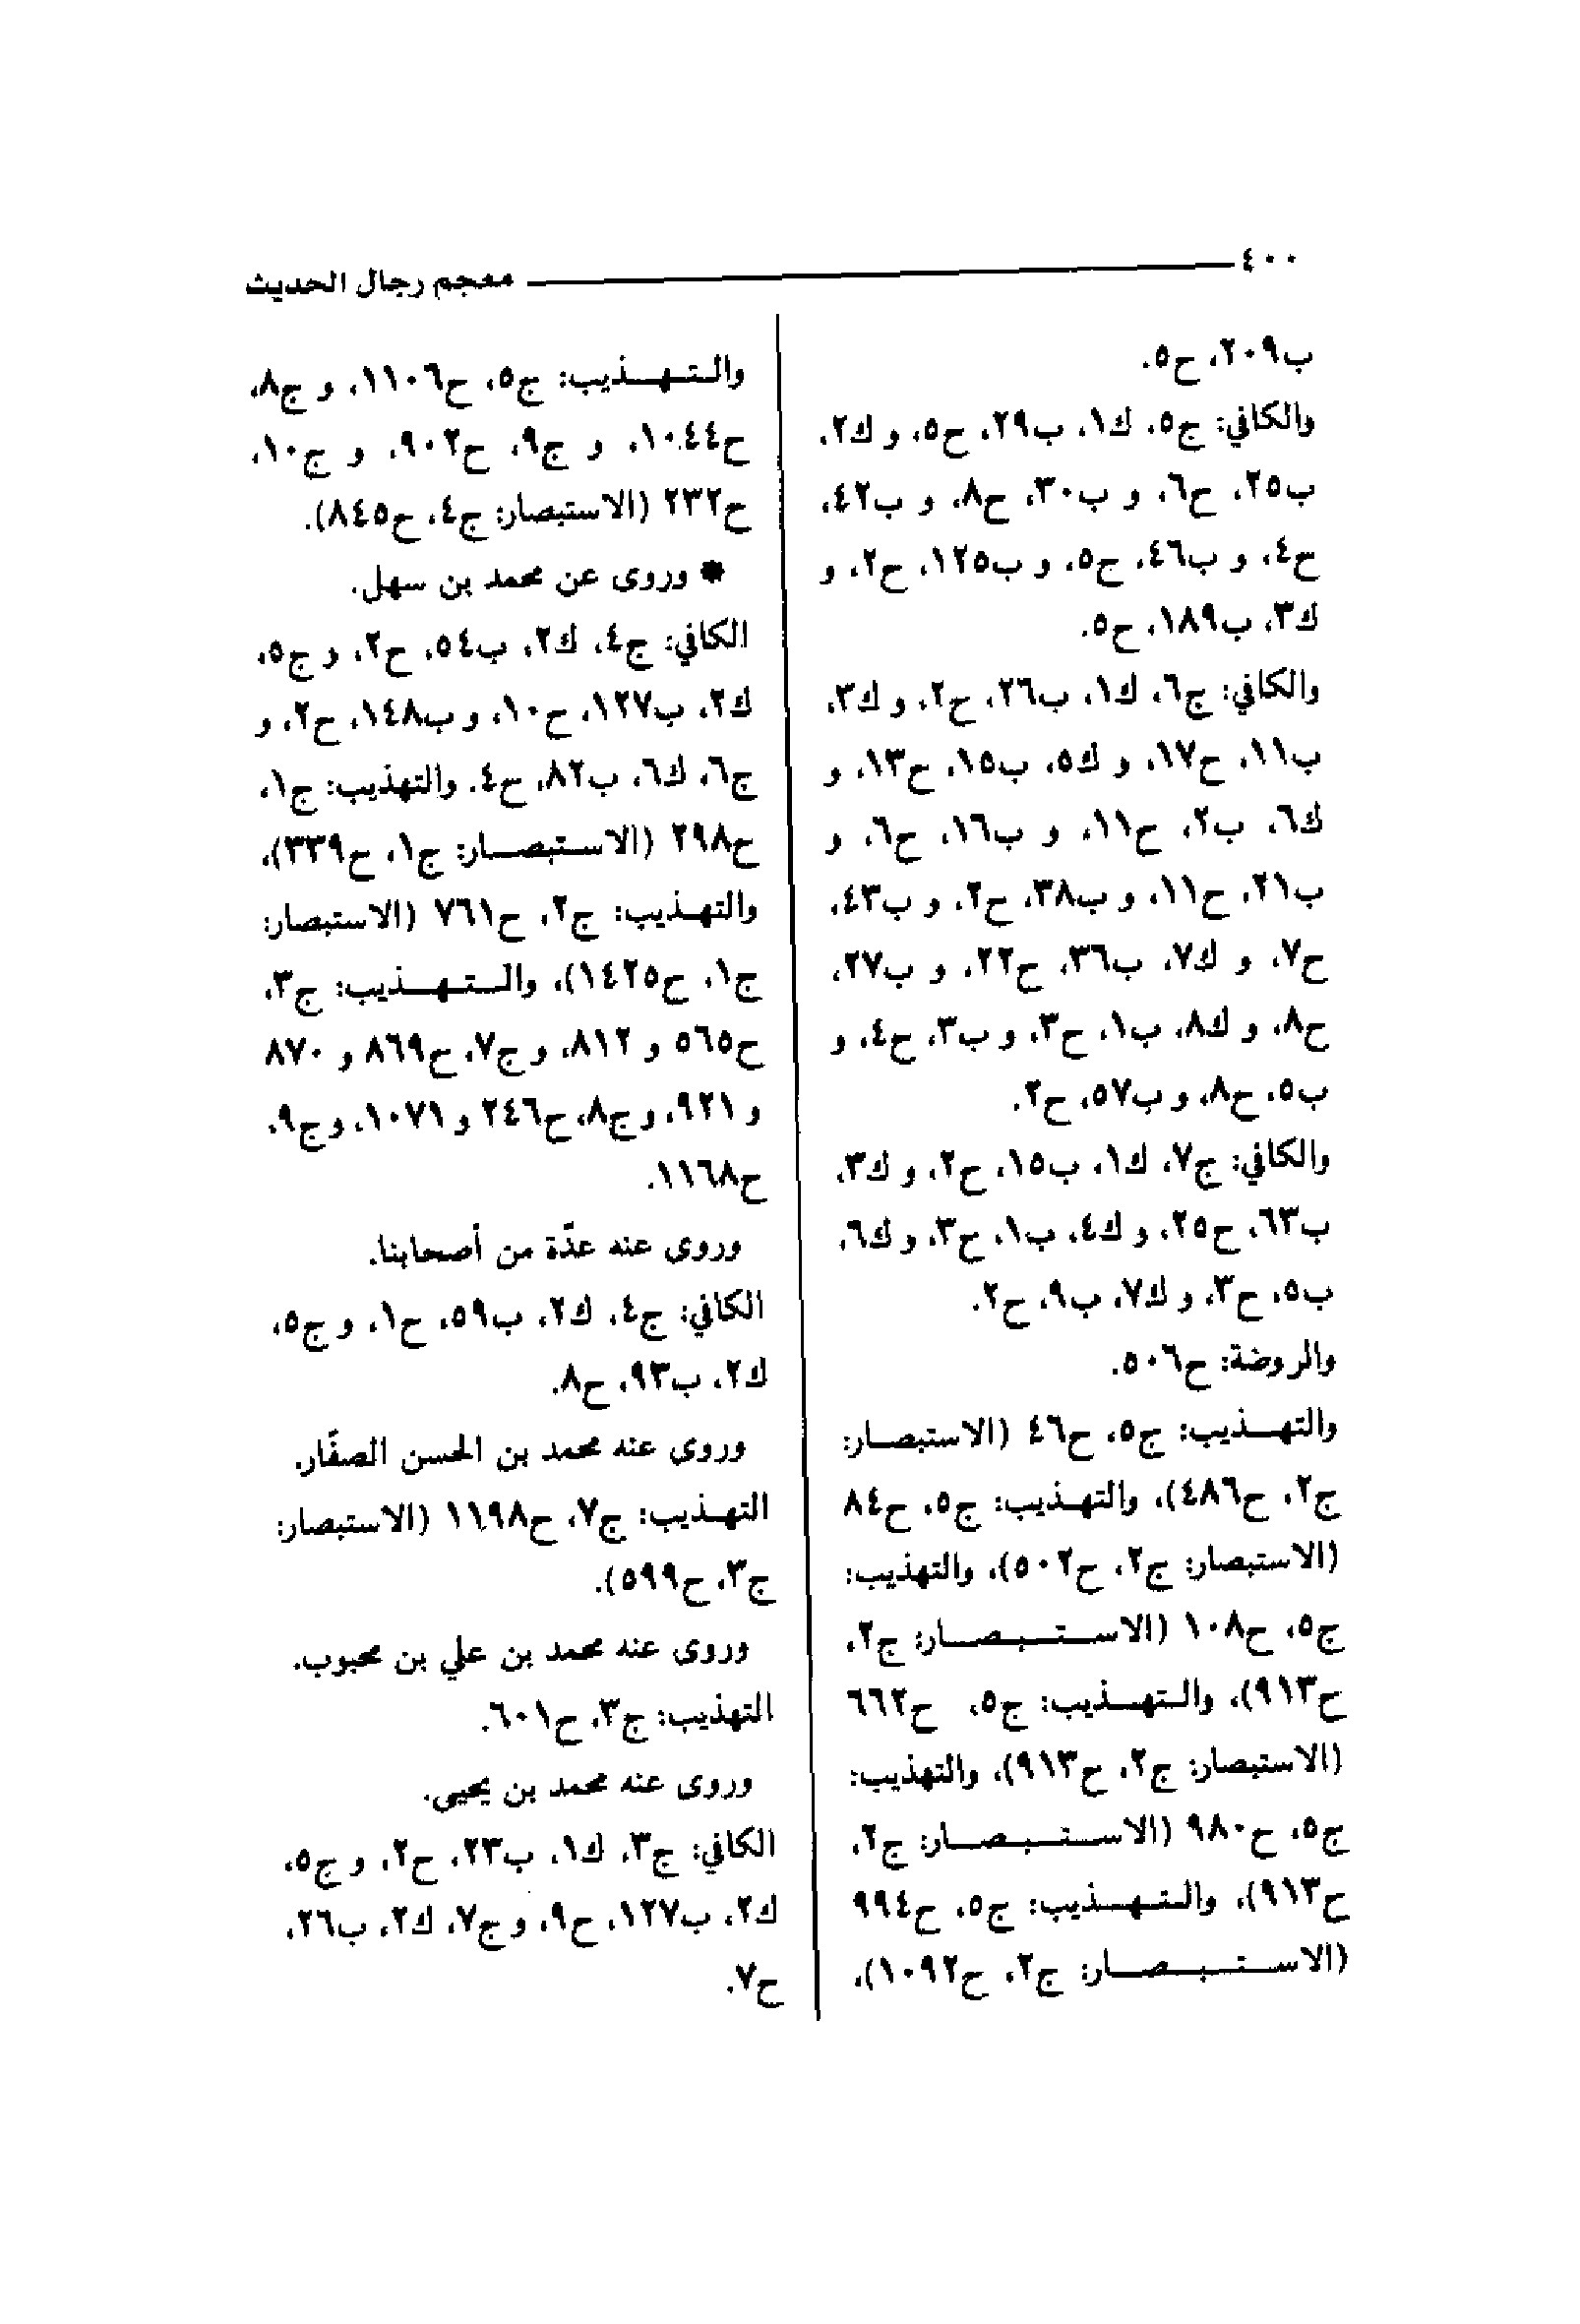 ٤٠٠ معجم رجال الحديث
ب٢٠٩، ح٥.
والكافي: ج٥، ك١، ب٢٩، ح٥، و ك٢،
ب٢٥، ح٦، و ب٣٠، ح٨، و ب٤٢،
ح٤، و ب٤٦، ح٥، و ب١٢٥، ح٢، و
ك٣، ب١٨٩، ح٥.
والكافي: ج٦، ك١، ب٢٦، ح٢، و ك٣،
ب١١، ح١٧، و ك٥، ب١٥، ح١٣، و
ك٦، ب٢، ح١١، و ب١٦، ح٦، و
ب٢١، ح١١، و ب٣٨، ح٢، و ب٤٣،
ح٧، و ك٧، ب٣٦، ح٢٢، و ب٢٧،
ح٨، و ك٨، ب١، ح٣، و ب٣، ح٤، و
ب٥، ح٨، و ب٥٧، ح٢.
والكافي: ج٧، ك١، ب١٥، ح٢، و ك٣،
ب٦٣، ح٢٥، و ك٤، ب١، ح٣، و ك٦،
ب٥، ح٣، و ك٧، ب٩، ح٢.
والروضة: ح٥٠٦.
والتهذيب: ج٥، ح٤٦ (الاستبصار:
ج٢، ح٤٨٦)، والتهذيب: ج٥، ح٨٤
(الاستبصار: ج٢، ح٥٠٢)، والتهذيب:
ج٥، ح١٠٨ (الاستبصار: ج٢،
ح٩١٣)، والتهذيب: ج٥، ح٦٦٢
(الاستبصار: ج٢، ح٩١٣)، والتهذيب:
ج٥، ح٩٨٠ (الاستبصار: ج٢،
ح٩١٣)، والتهذيب: ج٥، ح٩٩٤
(الاستبصار: ج٢، ح١٠٩٢)،
والتهذيب: ج٥، ح١١٠٦، و ج٨،
ح١٠٤٤، و ج٩، ح٩٠٢، و ج١٠،
ح٢٣٢ (الاستبصار: ج٤، ح٨٤٥).
* وروى عن محمد بن سهل.
الكافي: ج٤، ك٢، ب٥٤، ح٢، و ج٥،
ك٢، ب١٢٧، ح١٠، و ب١٤٨، ح٢، و
ج٦، ك٦، ب٨٢، ح٤. والتهذيب: ج١،
ح٢٩٨ (الاستبصار: ج١، ح٣٣٩)،
والتهذيب: ج٢، ح٧٦١ (الاستبصار:
ج١، ح١٤٢٥)، والتهذيب: ج٣،
ح٥٦٥ و ٨١٢، و ج٧، ح٨٦٩ و ٨٧٠
و ٩٢١، و ج٨، ح٢٤٦ و ١٠٧١، و ج٩،
ح١١٦٨.
وروى عنه عدّة من أصحابنا.
الكافي: ج٤، ك٢، ب٥٩، ح١، و ج٥،
ك٢، ب٩٣، ح٨.
وروى عنه محمد بن الحسن الصفّار.
التهذيب: ج٧، ح١١٩٨ (الاستبصار:
ج٣، ح٥٩٩).
وروى عنه محمد بن علي بن محبوب.
التهذيب: ج٣، ح٦٠١.
وروى عنه محمد بن يحيى.
الكافي: ج٣، ك١، ب٢٣، ح٢، و ج٥،
ك٢، ب١٢٧، ح٩، و ج٧، ك٢، ب٢٦،
ح٧.